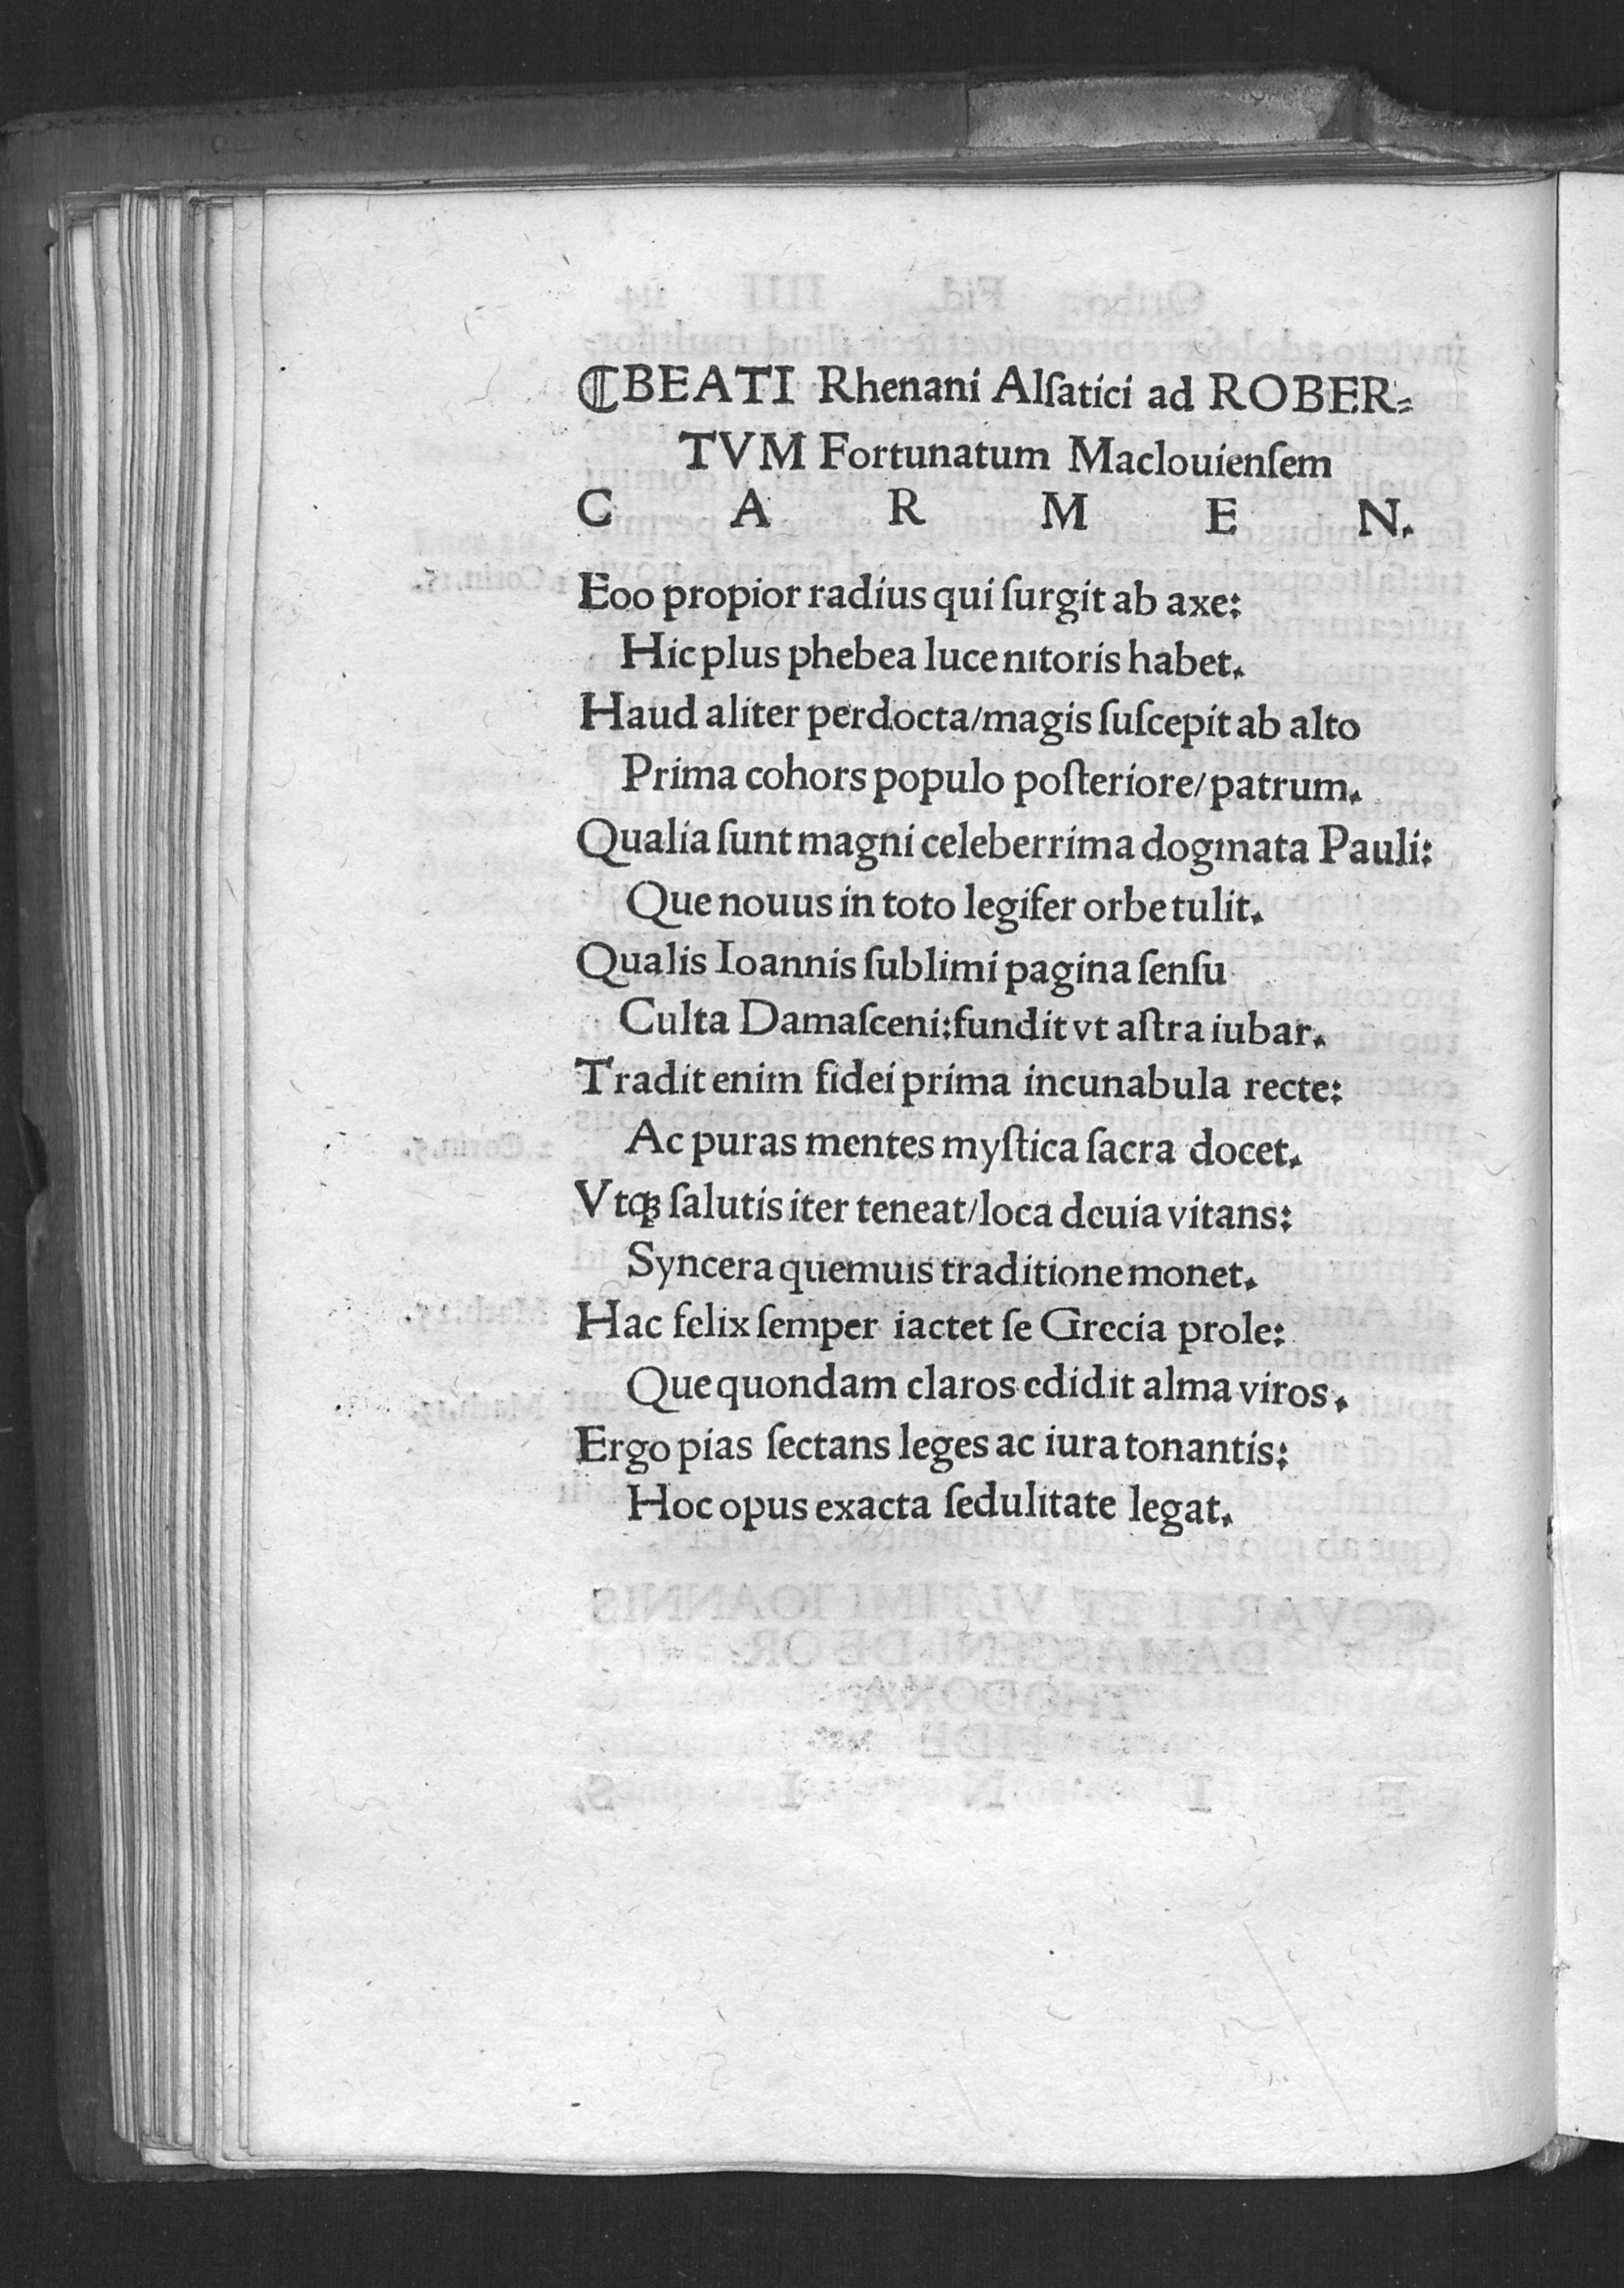 ⁋BEATI Rhenani Alſatici ad ROBER⸗
TVM Fortunatum Maclouienſem
C A R M E N.
Eoo propior radius qui ſurgit ab axe:
Hic plus phebea luce nitoris habet.
Haud aliter perdocta/magis ſuſcepit ab alto
Prima cohors populo poſteriore/patrum.
Qualia ſunt magni celeberrima dogmata Pauli:
Que nouus in toto legifer orbe tulit.
Qualis Ioannis ſublimi pagina ſenſu
Culta Damaſceni:fundit vt aſtra iubar.
Tradit enim fidei prima incunabula recte:
Ac puras mentes myſtica ſacra docet.
Vtqꝫ ſalutis iter teneat/loca deuia vitans:
Syncera quemuis traditione monet.
Hac felix ſemper iactet ſe Grecia prole:
Que quondam claros edidit alma viros.
Ergo pias ſectans leges ac iura tonantis:
Hoc opus exacta ſedulitate legat.